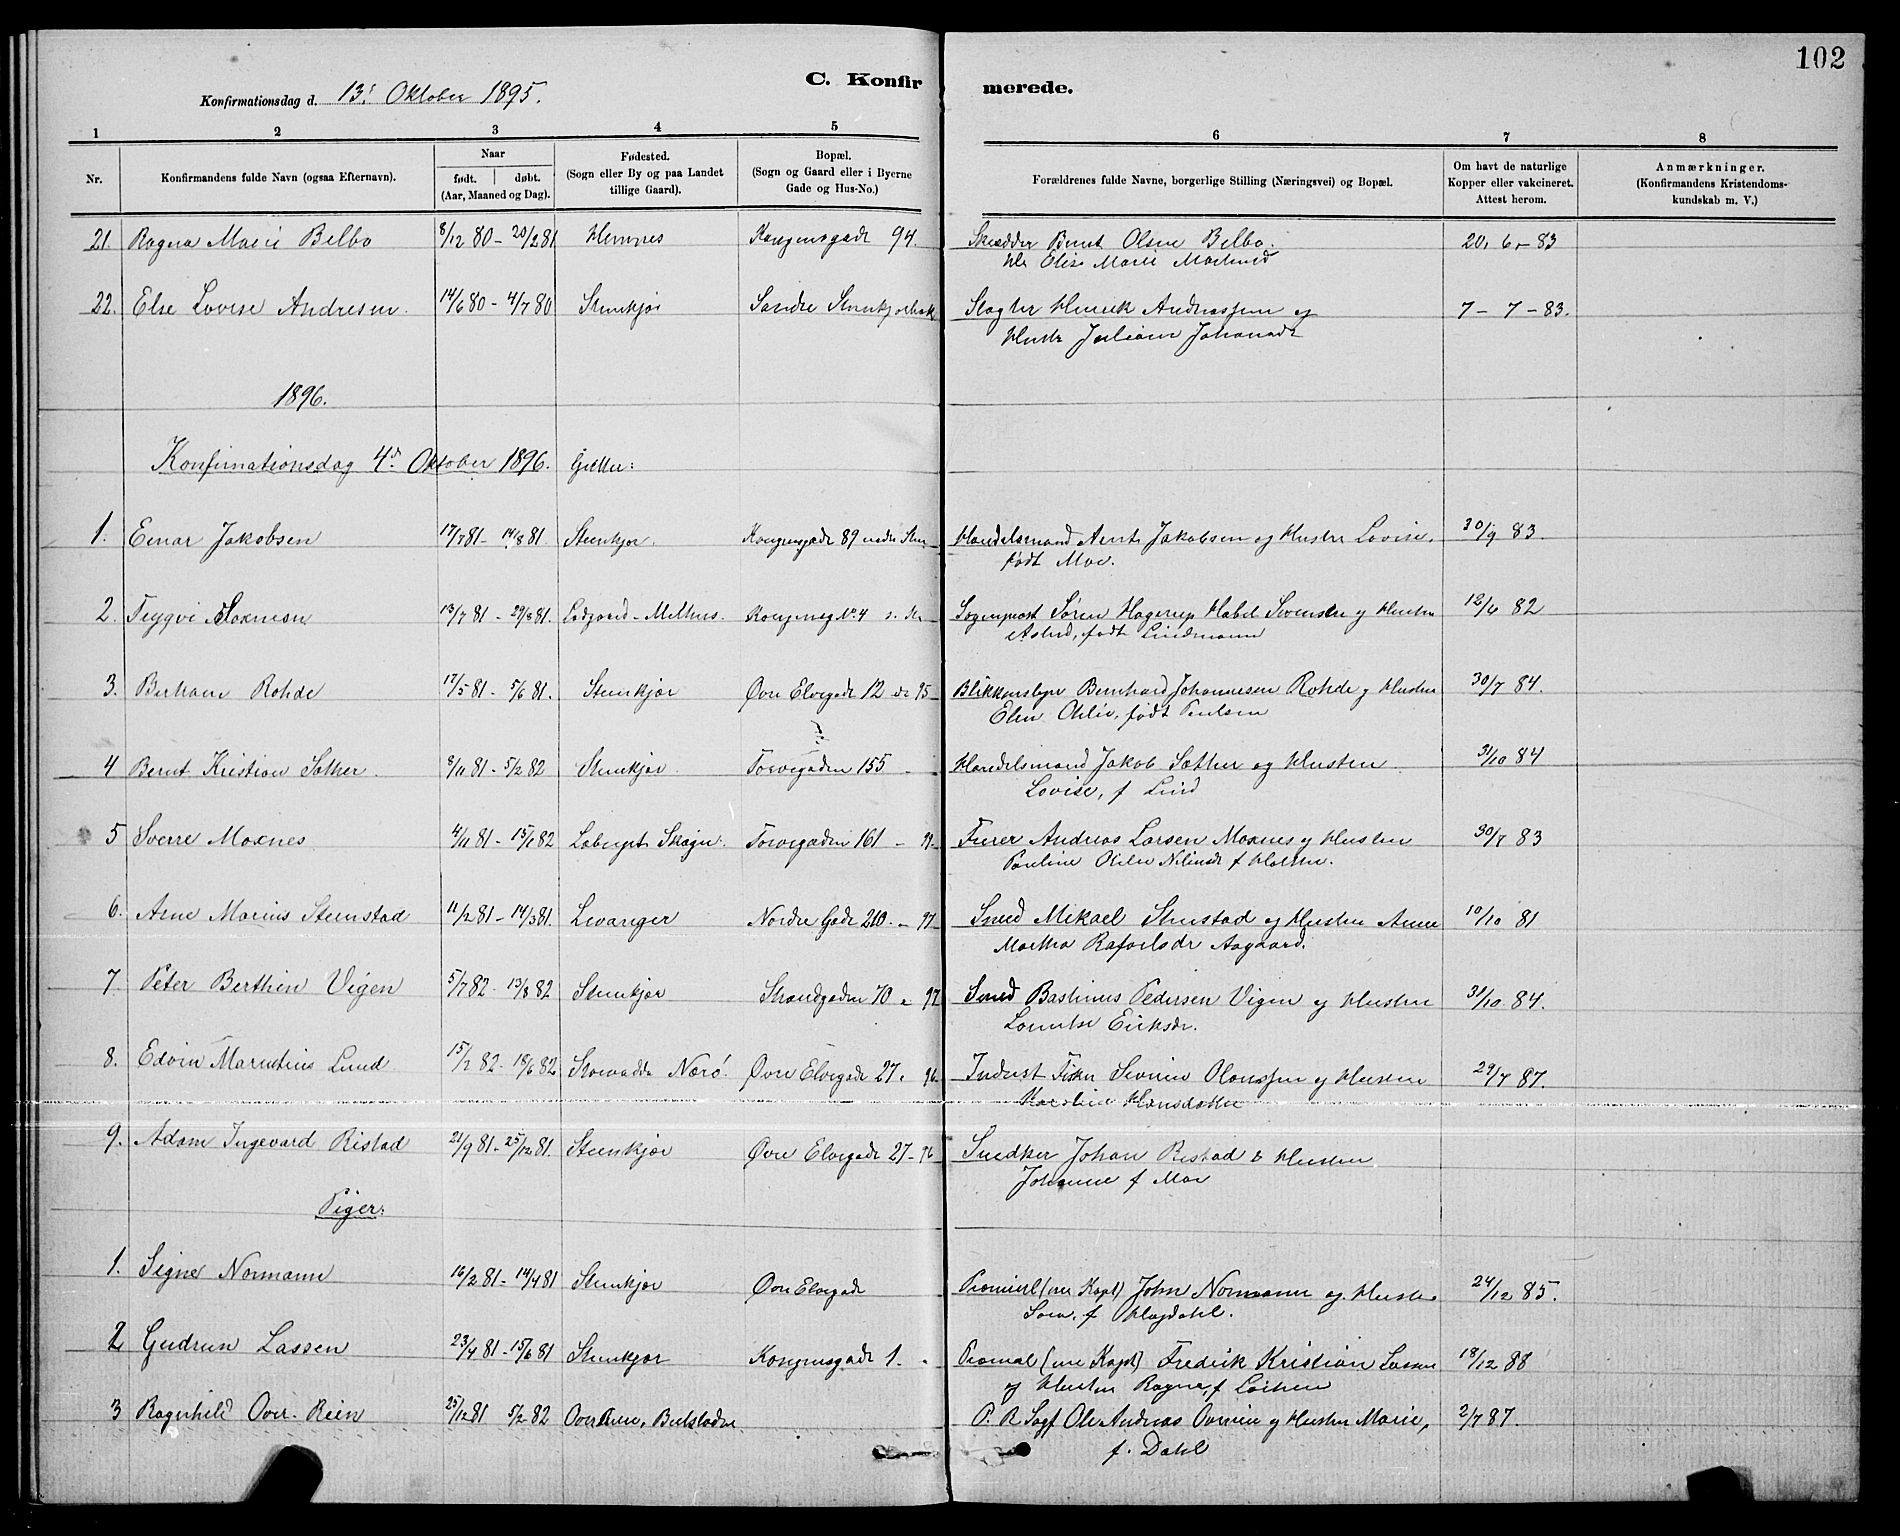 102
Konfirmationsdag d. 13' Oktober 1895.
C. Konfirmerede.
1 2 3 4 5 6 7 8
Nr.
Konfirmandens fulde Navn (ogsaa Efternavn).
Naar
født. døbt.
(Aar, Maaned og Dag).
Fødested.
(Sogn eller By og paa Landet
tillige Gaard).
Bopæl.
(Sogn og Gaard eller i Byerne
Gade og Hus-No.)
Forældrenes fulde Navne, borgerlige Stilling (Næringsvei) og Bopæl.
Om havt de naturlige
Kopper eller vakcineret.
Attest herom.
Anmærkninger.
(Konfirmandens Kristendoms-
kundskab m. V.)
21. Ragna Marie Belbo 8/12 80 - 20/2 81 Hemnes Kongensgade 94. Skrædder Bernt Olsen Belbo. 20, 6 - 83
Elise Marie
22. Else Lovise Andresen. 14/6 80 - 4/7 80 Stenkjær Søndre Slagter Henrik Andreassen og 7 - 7 - 83.
Hustr Juliane
1896.
Konfirmationsdag 4d Oktober 1896. Gutter:
1. Einar Jakobsen 17/7 81 - 14/8 81 Steenkjær. Kongensgade 89 Handelsmand Arnt Jakobsen og Hustru Lovise, 30/9 83
født Moe.
2. Trygve 13/7 81 - 29/8 81. Melhus. No 4 Sogneprest Søren Hagerup og Hustru 12/6 82
født Lindemann
3. Rohde 17/5 81 - 5/6 81. Stenkjær Øvre Elvegade 12 Blikkenslager Bernhard Johannesen Rohde og Hustru 30/7 84.
Elen Oliv, født Paulsen
4 Bernt Kristian Sæther. 8/11 81 - 5/2 82 Stenkjær Torvegaden 155 Handelsmand Jakob Sæther og Hustru 31/10 84
Lovise, f Lund
5 Sverre Moxnes 4/11 81 - 15/1 82 Skogn. Torvegaden 161 Andreas Larsen Moxnes og Hustru 30/7 83
Pauline
6. Arne Marius Stenstad 11/2 81 - 14/3 81. Levanger Nordre Gade 210. Smed Mikael Stenstad og Hustru Anne 10/10 81
Martha Rafaelsdr Aagaard.
7. Peter Berthin Vigen 5/7 82 - 13/8 82 Stenkjær Strandgaden 70 Smed Bastinus Pedersen Vigen og Hustru 31/10 84.
Eriksdr.
8. Edvin Lund 15/2 82 - 18/6 82 Nærö. Øvre Elvegade 27. Indust Fisker og Hustru 29/7 87.
Hansdatter
9. Adam Ingevard Ristad 21/9 81 - 25/12 81. Steenkjær Øvre Elvegade 27 Snedker Johan Ristad & Hustru
Johanne f Moe
Piger:
1. Signe Normann 16/2 81 - 14/4 81 Stenkjær Øvre Elvegade John Normann og Hustru 24/12 85.
2 Gudrun Lassen 23/4 81 - 15/6 81 Stenkjær Kongensgade 1. Fredrik Kristian Lassen 18/12 88
og Hustru Ragna, f
3 Ragnhild Over-Rein 25/12 81 5/2 82 OverRein, Beitstaden O. R Sagf Ole Andreas Overrein og Hustru Marie, 2/7 87.
f. Dahl